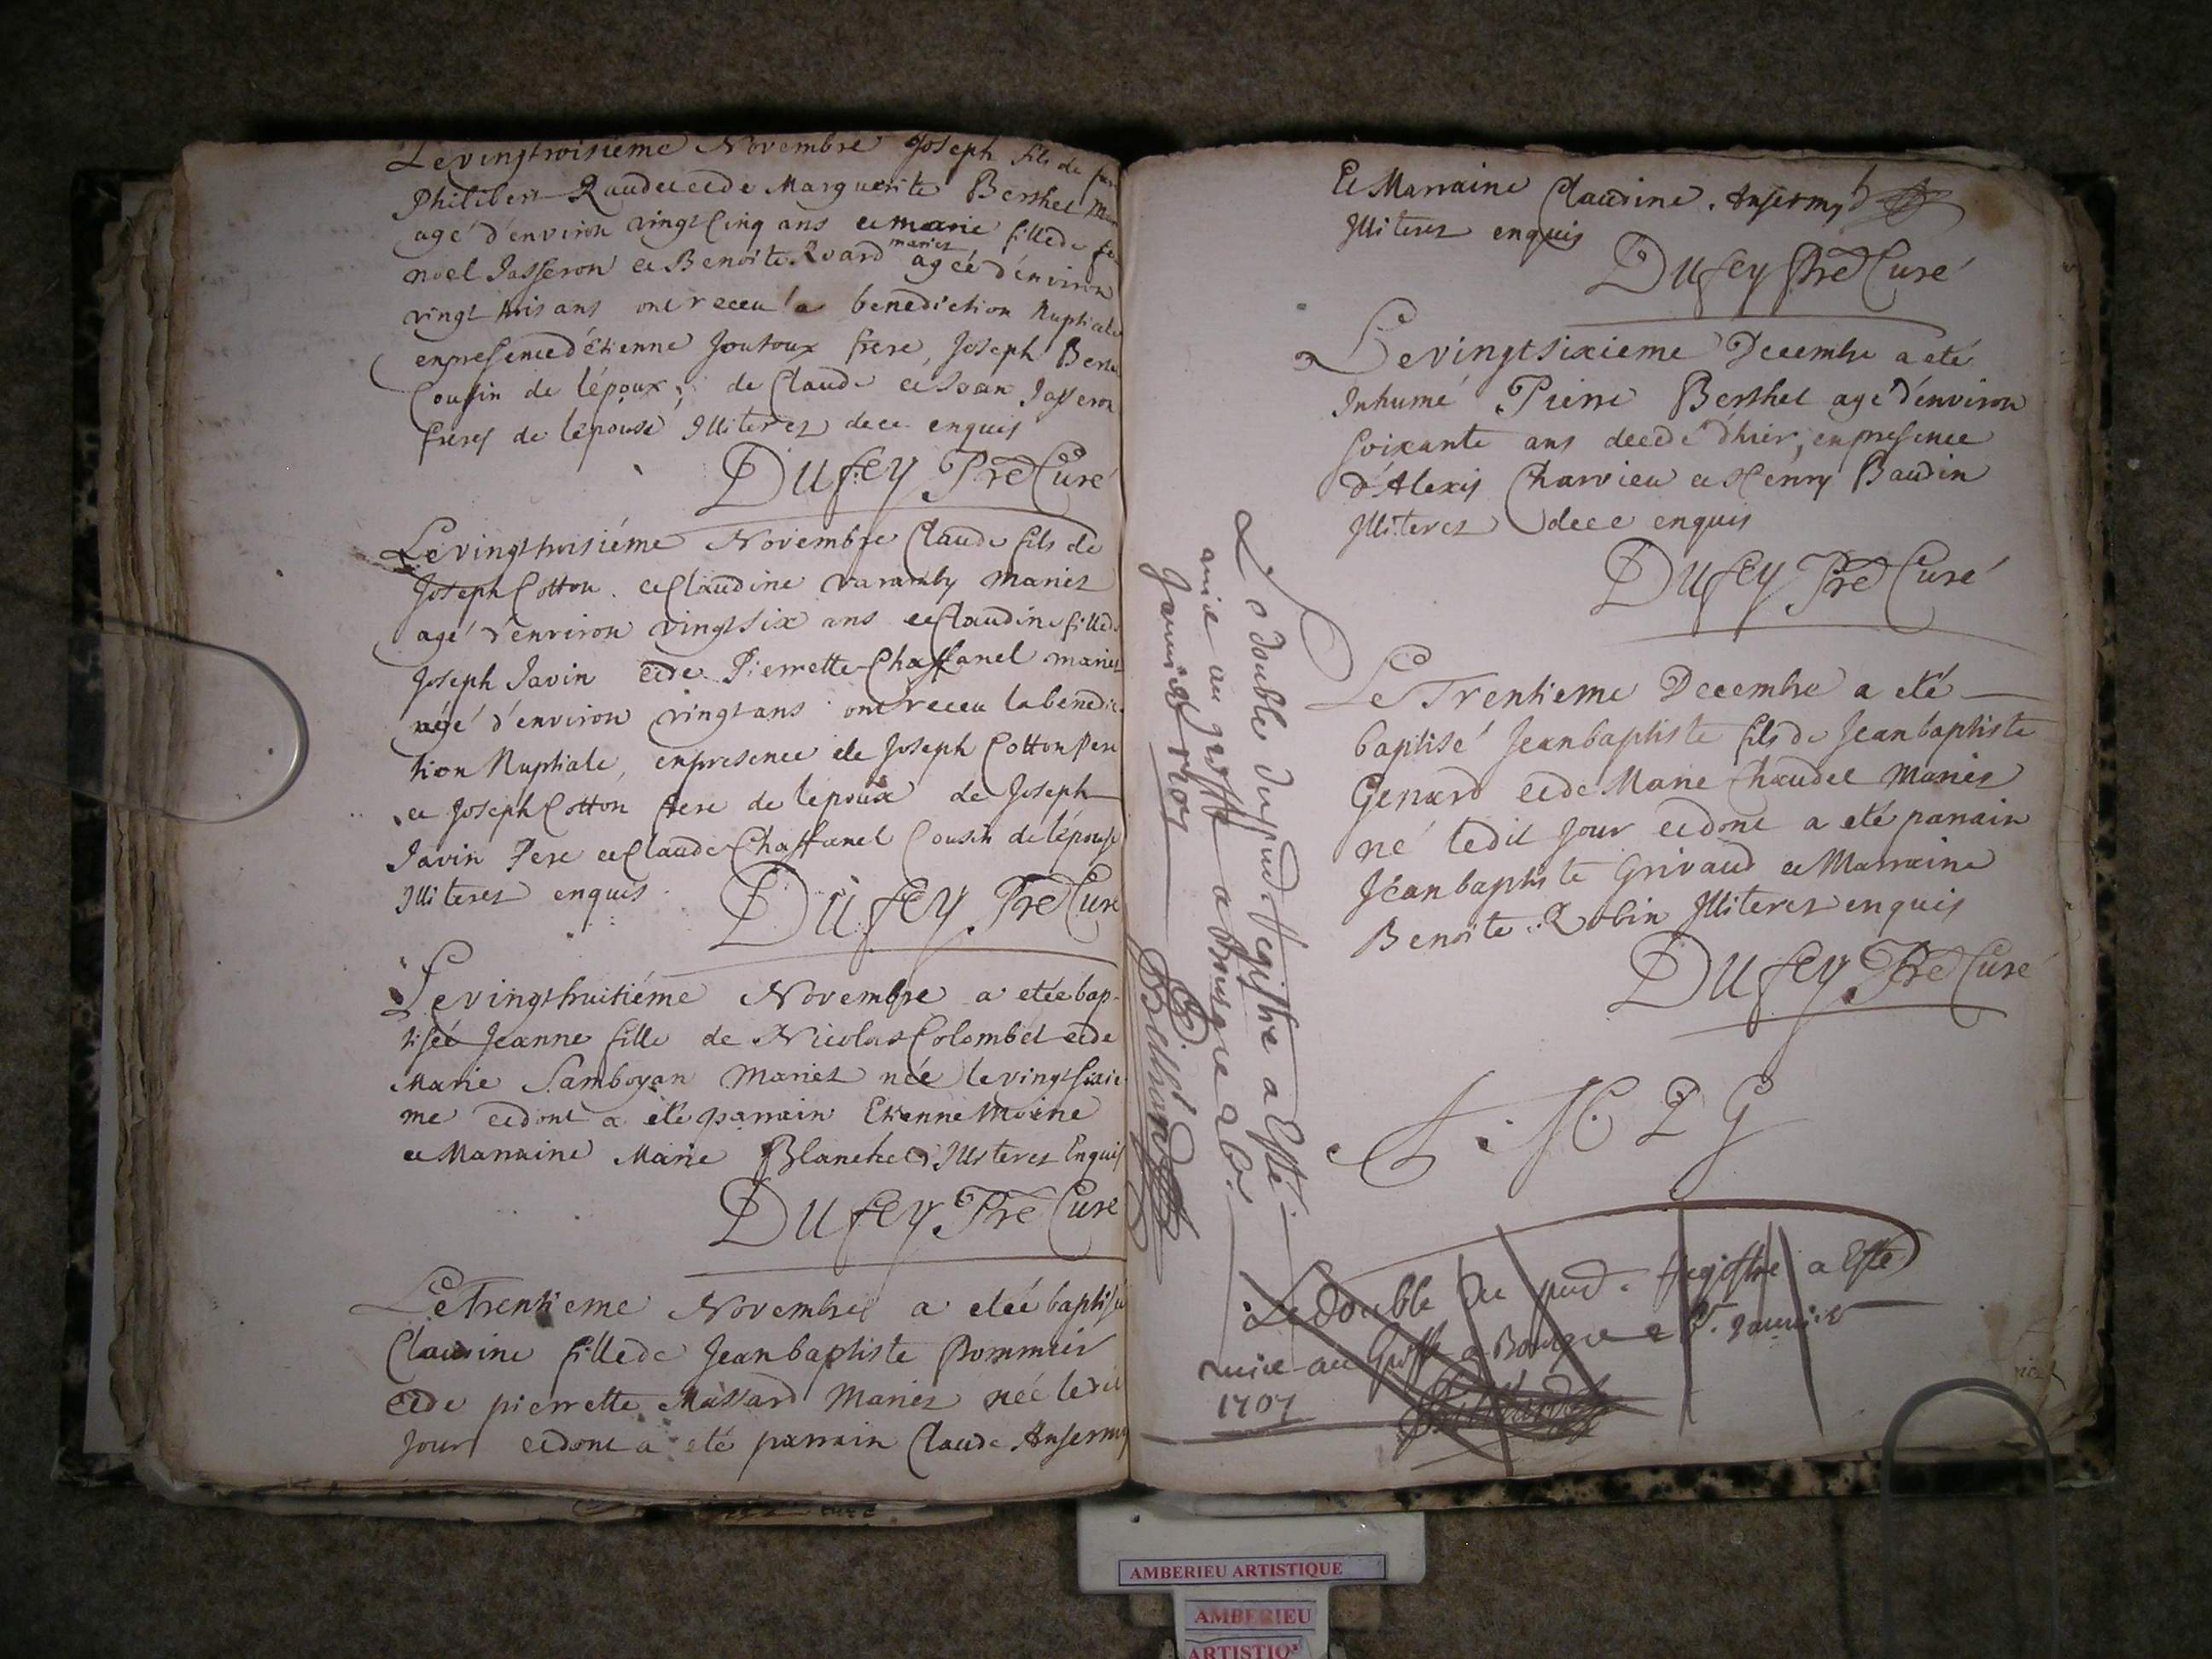 Le vingtroisieme Novembre Joseph fils de feu
Philibert Raudet et de Marguerite Berthet
agé d'environ vingt Cinq ans et marie fille de feu
noel Jasseron et Benoite Ruard mariez agée d'environ
vingt trois ans ont receu la benediction Nuptiale
en presence d'étienne Joutoux frere, Joseph
Cousin de l'époux, de Claude et Jean Jasseron
freres de l'epouse Illiterez de ce enquis
Dufey Pre Curé
Le vingt troisiéme Novembre Claude fils de
Joseph Cotton et Claudine Varamby mariez
agé d'environ vingt six ans et Claudine fille de
Joseph Javin et de Pierrette Chaffanel mariez
agé d'environ vingt ans ont receu la benedic
tion Nuptiale, en presence de Joseph Cotton Pere
et Joseph Cotton frere de lepoux de Joseph
Javin Pere et Claude Chaffanel Cousin de l'épouse
Illiterez enquis
Dufey Pre Curé
Le vingt huitiéme Novembre a etée bap
tisée Jeanne fille de Nicolas Colombet et de
Marie Samboyan Mariez née le vingt sixie
me et dont a eté parrain Etienne Moine
et Marraine Marie Blanchet Illiterez Enquis
Dufey Pre Curé
Le Trentieme Novembre a etée baptisée
Claudine fille de Jean baptiste Pommier
et de pierrette Massard Mariez née le dit
Jour et dont a eté parrain Claude Ansermy
Et Marraine Claudine Ansermy
Illiterez enquis
Dufey Pre Curé
Le vingt sixieme Decembre a eté
Inhumé Pierre Berthet agé d'environ
Soixante ans decedé d'hier, en presence
d'Alexis Charvieu et Henry Baudin
Illiterez de ce enquis
Dufey Pre Curé
Le Trentieme Decembre a eté
baptisé Jean baptiste fils de Jean baptiste
Genard et de Marie Chaudet Mariez
né ledit Jour et dont a eté parrain
Jean baptiste Grivaud et Marraine
Benoite Robin Illiterez enquis
Dufey Pre Curé
Le double du pnd. Registre a Esté
mise au Greffe a Bourg ce
Janvier 1707
Le double du pnd. Registre a Esté
mise au Greffe a Bourg ce Janvier
1707
AMBERIEU ARTISTIQUE
AMBERIEU